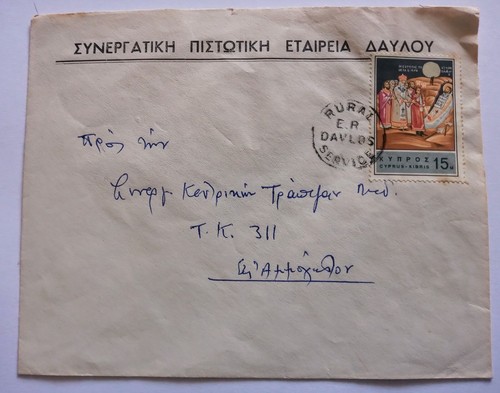 ΣΥΝΕΡΓΑΤΙΚΗ ΠΙΣΤΩΤΙΚΗ ΕΤΑΙΡΕΙΑ ΔΑΥΛΟΥ
RURAL
E.R
DAVLOS
SERVICE
ΚΥΠΡΟΣ 15
CYPRUS-KIBRIS
Πρὸς τὴν
Συνεργ Κεντρικὴν Τράπεζαν
Τ.Κ. 311
Ἀμμόχωστον